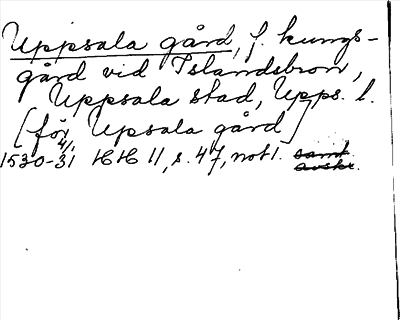 Uppsala gård, f. kungs-
gård vid Islandsbron,
Uppsala stad, Upps. l.
[för Upsala gård]
1530-31 4/1 HH 11, s. 47, not 1. samt
avskr.